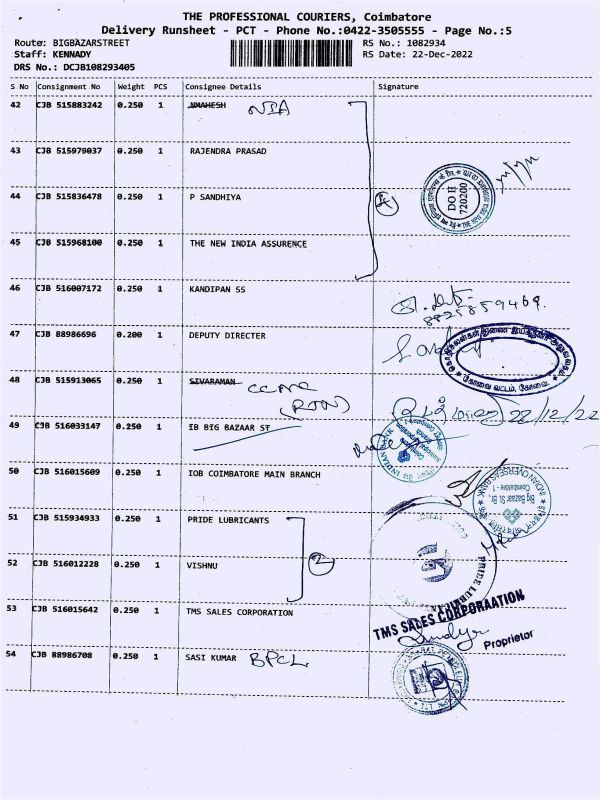 THE PROFESSIONAL COURIERS, Coimbatore
Delivery Runsheet - PCT - Phone No.:0422-3505555 - Page No.:5
Route: BIGBAZARSTREET
RS No.: 1082934
Staff: KENNADY
RS Date: 22-Dec-2022
DRS No.: DCJB108293405
S No Consignment No Weight PCS Consignee Details Signature
42 CJB 515883242 0.250 1 NMAHESH NIA
43 CJB 515979037 0.250 1 RAJENDRA PRASAD
44 CJB 515836478 0.250 1 P SANDHIYA
DO II
720200
45 CJB 515968100 0.250 1 THE NEW INDIA ASSURENCE
46 CJB 516007172 0.250 1 KANDIPAN SS
8825859469.
47 CJB 88986696 0.200 1 DEPUTY DIRECTER
கோவை வட்டம், கோவை.
48 CJB 515913065 0.250 1 SIVARAMAN
(RTN)
22/12/22
49 CJB 516033147 0.250 1 IB BIG BAZAAR ST
INDIAN BANK
50 CJB 516015609 0.250 1 IOB COIMBATORE MAIN BRANCH
INDIAN OVERSEAS BANK
Big Bazaar St. Br.
Coimbatore - 1
51 CJB 515934933 0.250 1 PRIDE LUBRICANTS
2
52 CJB 516012228 0.250 1 VISHNU
PRIDE LUBRICAN
53 CJB 516015642 0.250 1 TMS SALES CORPORATION
TMS SALES CORPORAATION
Proprietor
54 CJB 88986708 0.250 1 SASI KUMAR BPCL